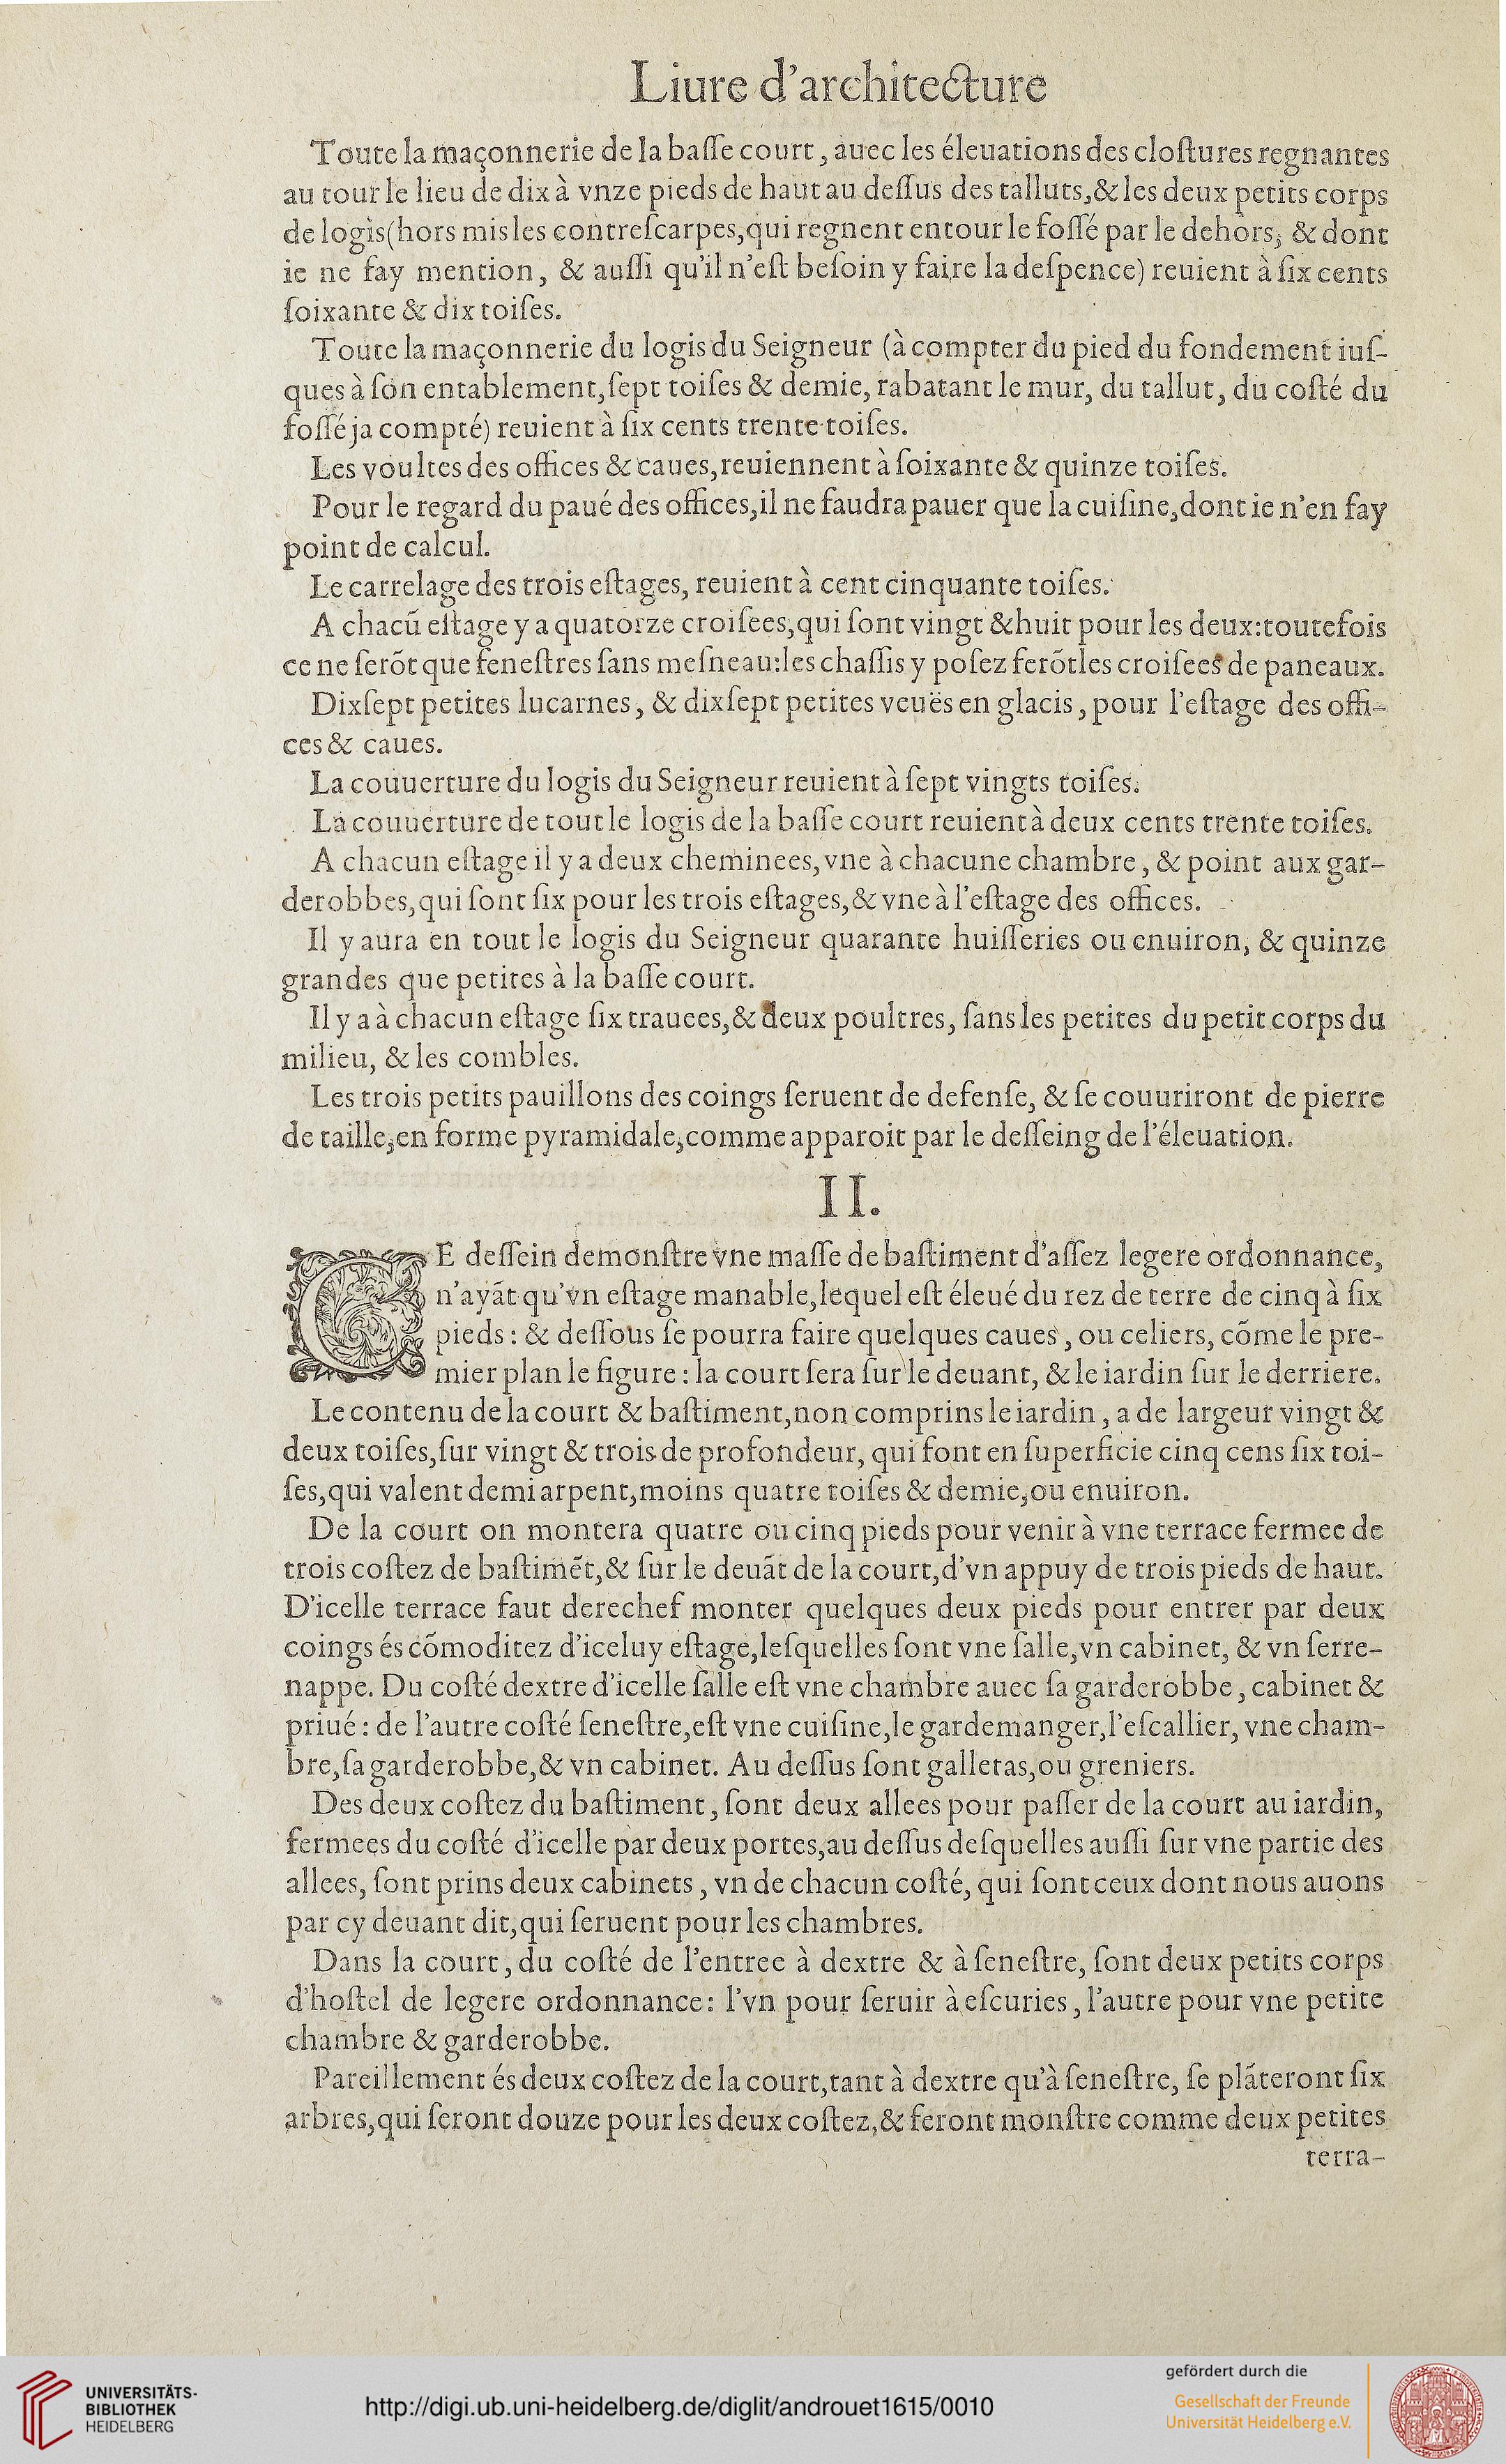 Liure d'architecture
Toute la maçonnerie de la baſſe court, auec les éleuations des cloſtures regnantes
au tour le lieu de dix à vnze pieds de haut au deſſus des talluts, & les deux petits corps
de logis (hors mis les contreſcarpes, qui regnent entour le foſſé par le dehors, & dont
ie ne fay mention, & auſſi qu'il n'eſt beſoin y faire la deſpence) reuient à ſix cents
ſoixante & dix toiſes.
Toute la maçonnerie du logis du Seigneur (à compter du pied du fondement iuſ-
ques à ſon entablement, ſept toiſes & demie, rabatant le mur, du tallut, du coſté du
foſſé ja compté) reuient à ſix cents trente toiſes.
Les voultes des offices & caues, reuiennent à ſoixante & quinze toiſes.
Pour le regard du paué des offices, il ne faudra pauer que la cuiſine, dont ie n'en fay
point de calcul.
Le carrelage des trois eſtages, reuient à cent cinquante toiſes.
A chacũ eſtage y a quatorze croiſees, qui ſont vingt & huit pour les deux: toutefois
ce ne ſerõt que feneſtres ſans meſneau: les chaſſis y poſez ferõt les croiſees de paneaux.
Dixſept petites lucarnes, & dixſept petites veuës en glacis, pour l'eſtage des offi-
ces & caues.
La couuerture du logis du Seigneur reuient à ſept vingts toiſes.
La couuerture de tout le logis de la baſſe court reuient à deux cents trente toiſes.
A chacun eſtage il y a deux cheminees, vne à chacune chambre, & point aux gar-
derobbes, qui ſont ſix pour les trois eſtages, & vne à l'eſtage des offices.
Il y aura en tout le logis du Seigneur quarante huiſſeries ou enuiron, & quinze
grandes que petites à la baſſe court.
Il y a à chacun eſtage ſix trauees, & deux poultres, ſans les petites du petit corps du
milieu, & les combles.
Les trois petits pauillons des coings ſeruent de defenſe, & ſe couuriront de pierre
de taille, en forme pyramidale, comme apparoit par le deſſeing de l'éleuation.
II.
CE deſſein demonſtre vne maſſe de baſtiment d'aſſez legere ordonnance,
n'ayãt qu'vn eſtage manable, lequel eſt éleué du rez de terre de cinq à ſix
pieds: & deſſous ſe pourra faire quelques caues, ou celiers, cõme le pre-
mier plan le figure: la court ſera ſur le deuant, & le iardin ſur le derriere.
Le contenu de la court & baſtiment, non comprins le iardin, a de largeur vingt &
deux toiſes, ſur vingt & trois de profondeur, qui font en ſuperficie cinq cens ſix toi-
ſes, qui valent demi arpent, moins quatre toiſes & demie, ou enuiron.
De la court on montera quatre ou cinq pieds pour venir à vne terrace fermee de
trois coſtez de baſtimẽt, & ſur le deuãt de la court, d'vn appuy de trois pieds de haut.
D'icelle terrace faut derechef monter quelques deux pieds pour entrer par deux
coings és cõmoditez d'iceluy eſtage, leſquelles ſont vne ſalle, vn cabinet, & vn ſerre-
nappe. Du coſté dextre d'icelle ſalle eſt vne chambre auec ſa garderobbe, cabinet &
priué: de l'autre coſté ſeneſtre, eſt vne cuiſine, le gardemanger, l'eſcallier, vne cham-
bre, ſa garderobbe, & vn cabinet. Au deſſus ſont galletas, ou greniers.
Des deux coſtez du baſtiment, ſont deux allees pour paſſer de la court au iardin,
fermees du coſté d'icelle par deux portes, au deſſus deſquelles auſſi ſur vne partie des
allees, ſont prins deux cabinets, vn de chacun coſté, qui ſont ceux dont nous auons
par cy deuant dit, qui ſeruent pour les chambres.
Dans la court, du coſté de l'entree à dextre & à ſeneſtre, ſont deux petits corps
d'hoſtel de legere ordonnance: l'vn pour ſeruir à eſcuries, l'autre pour vne petite
chambre & garderobbe.
Pareillement és deux coſtez de la court, tant à dextre qu'à ſeneſtre, ſe plãteront ſix
arbres, qui ſeront douze pour les deux coſtez, & feront monſtre comme deux petites
terra-
UNIVERSITÄTS-
BIBLIOTHEK
HEIDELBERG
http://digi.ub.uni-heidelberg.de/diglit/androuet1615/0010
gefördert durch die
Gesellschaft der Freunde
Universität Heidelberg e.V.